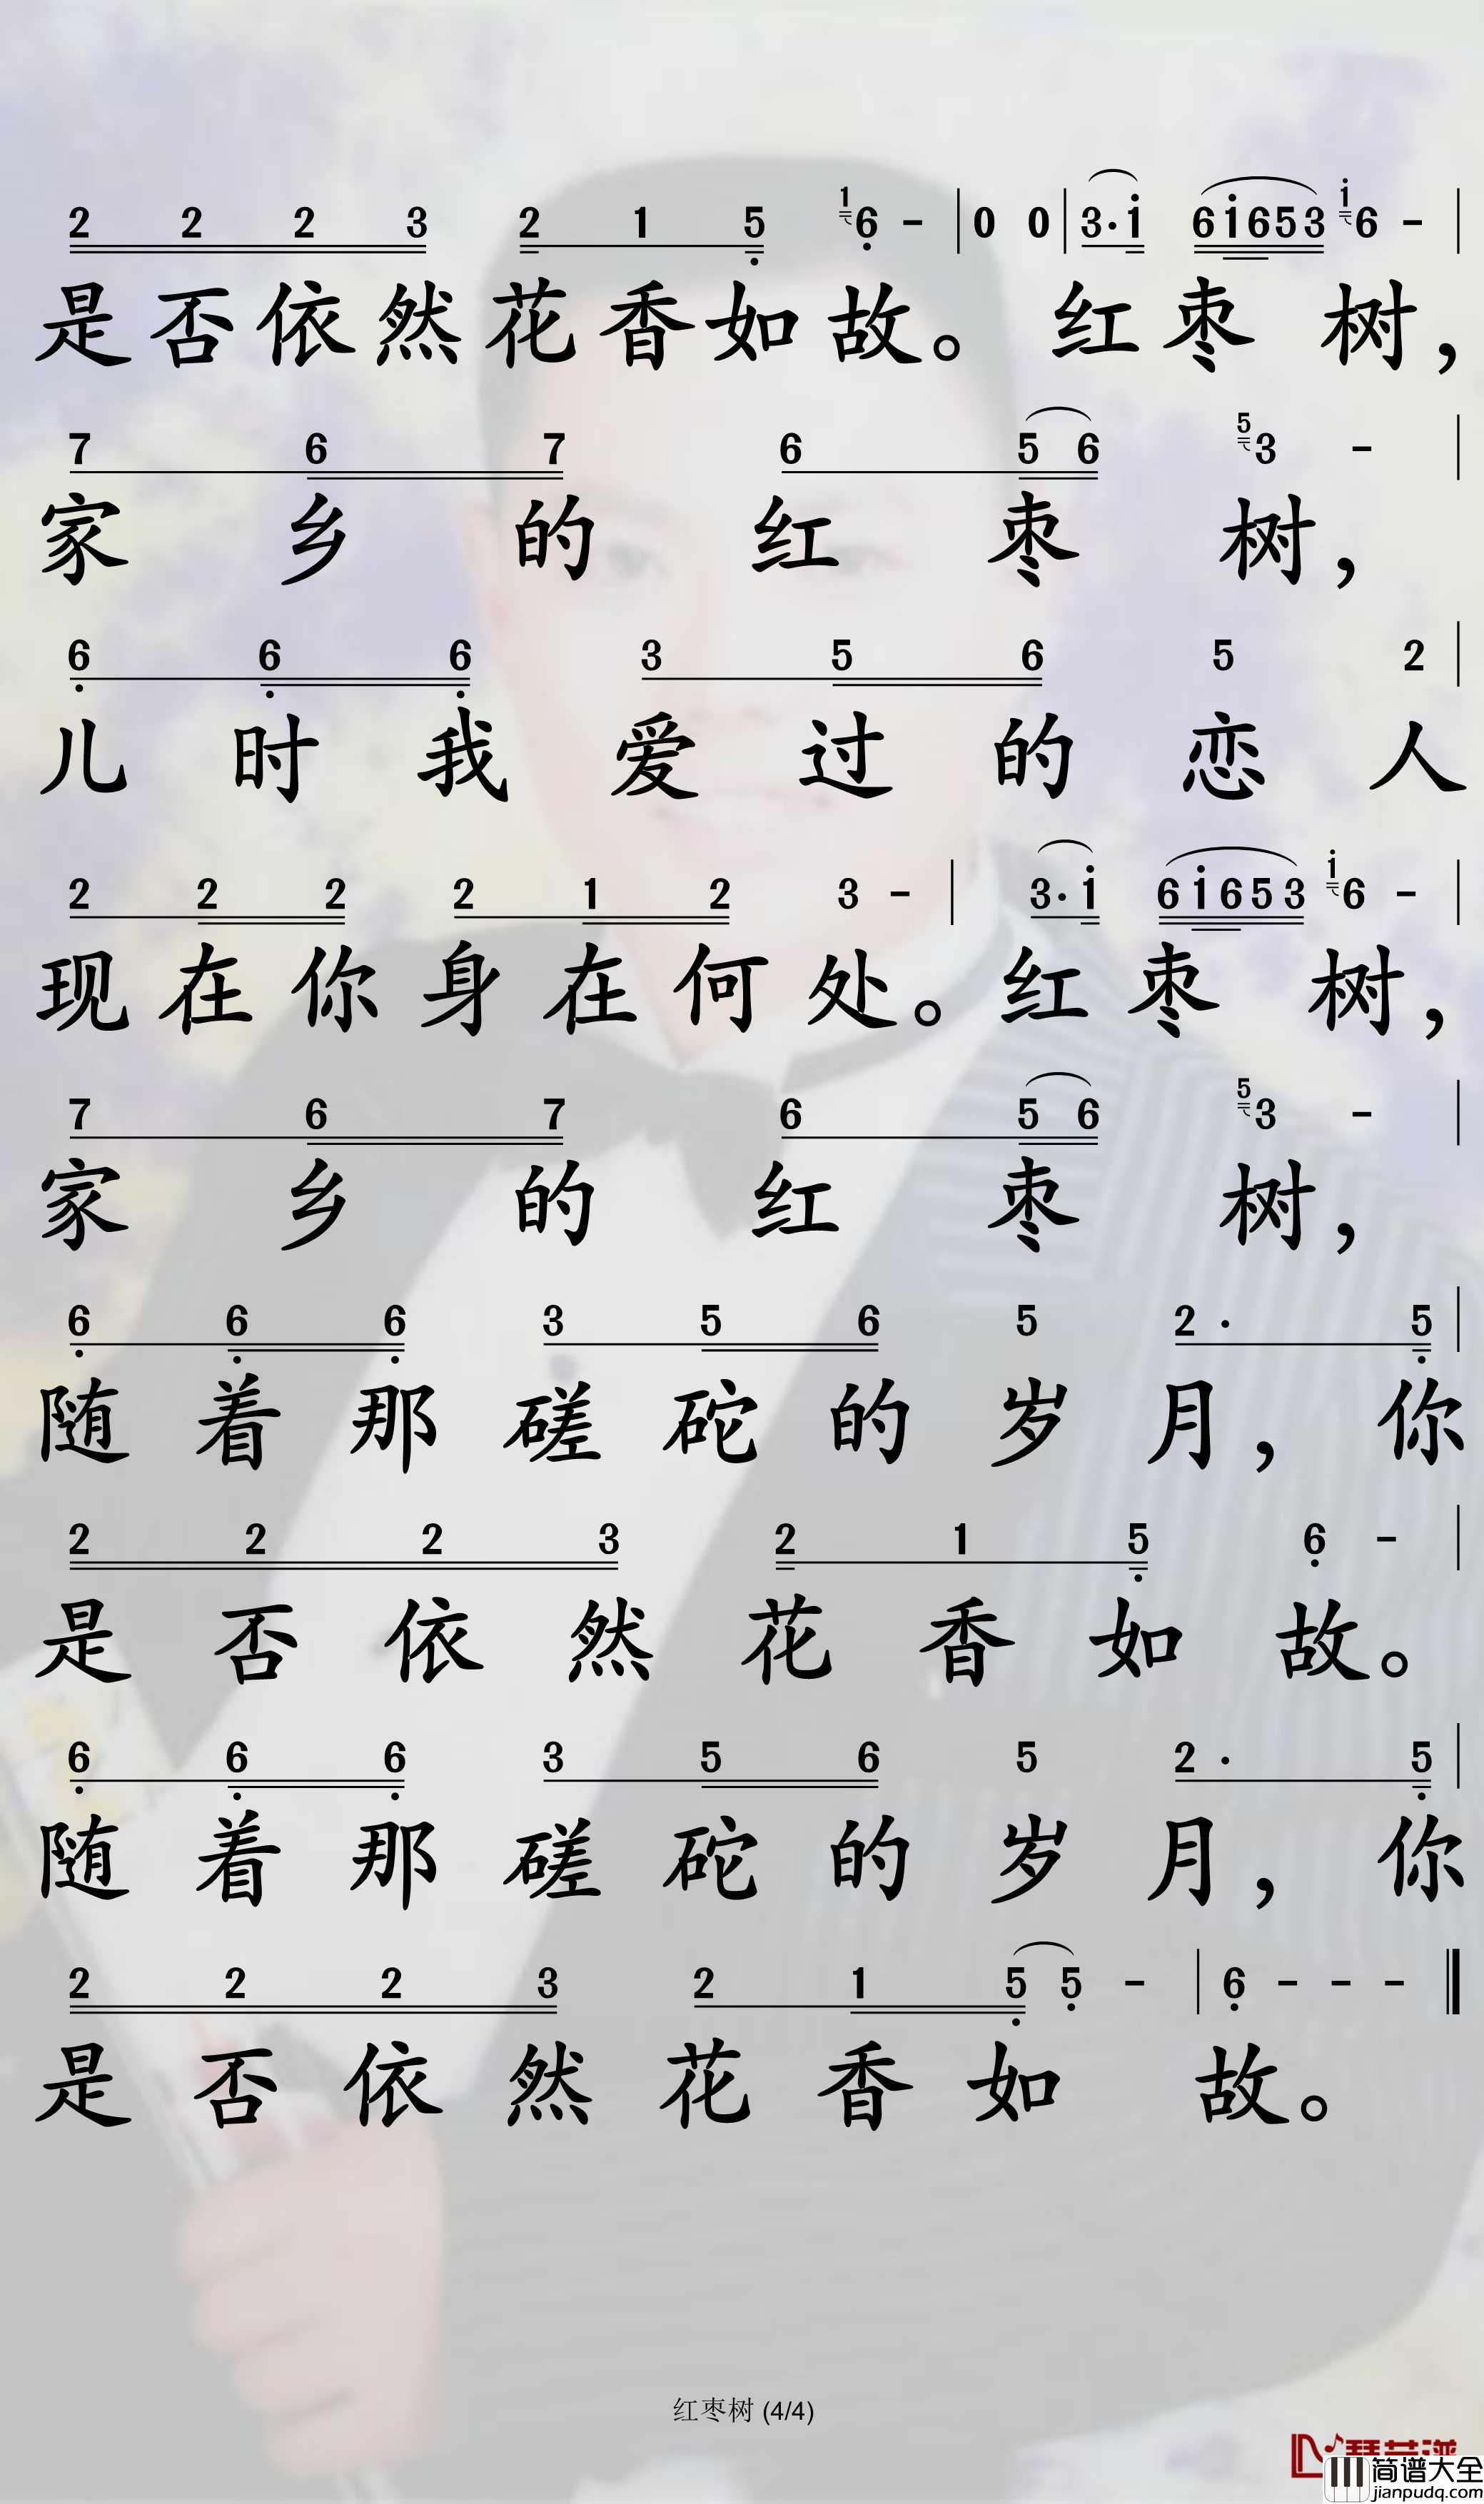 2 2 2 3 2 1 5 1 6 - | 0 0 | 3· i 6 i 6 5 3 i 6 - |
是否依然花香如故。 红枣 树，
7 6 7 6 5 6 5 3 - |
家 乡 的 红 枣 树，
6 6 6 3 5 6 5 2 |
儿 时 我 爱 过 的 恋 人
2 2 2 2 1 2 3 - | 3· i 6 i 6 5 3 i 6 - |
现在你身在何处。红枣 树，
7 6 7 6 5 6 5 3 - |
家 乡 的 红 枣 树，
6 6 6 3 5 6 5 2 · 5 |
随 着 那 磋 砣 的 岁 月， 你
2 2 2 3 2 1 5 6 - |
是 否 依 然 花 香 如 故。
6 6 6 3 5 6 5 2 · 5 |
随 着 那 磋 砣 的 岁 月， 你
2 2 2 3 2 1 5 5 - | 6 - - - ‖
是 否 依 然 花 香 如 故。
红枣树 (4/4)
简谱大全
jianpudq.com